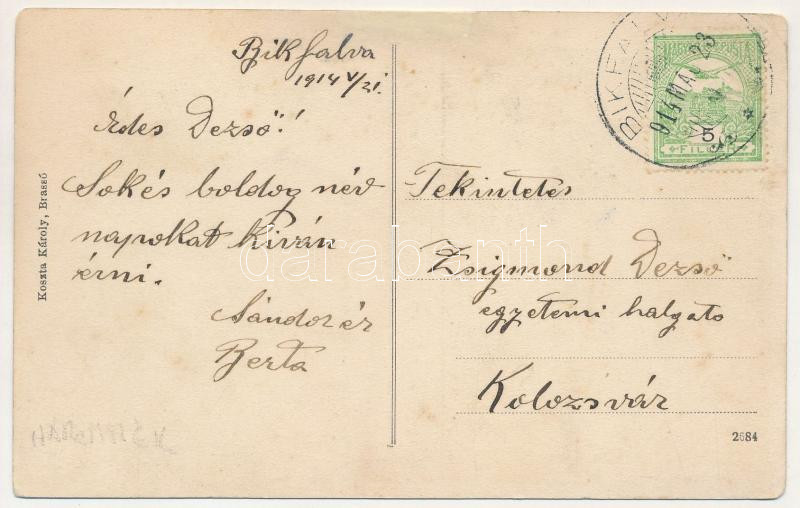 Bikfalva
1914 V/21.
Édes Dezső!
Sok és boldog név
napokat kiván
érni.
Sándor és
Berta
Koszta Károly, Brassó
BIKFALVA
914 MAJ 23
MAGYAR KIR. POSTA
5
FILLÉR
Tekintetes
Zsigmond Dezső
egyetemi halgato
Kolozsvár
2684
darabanth